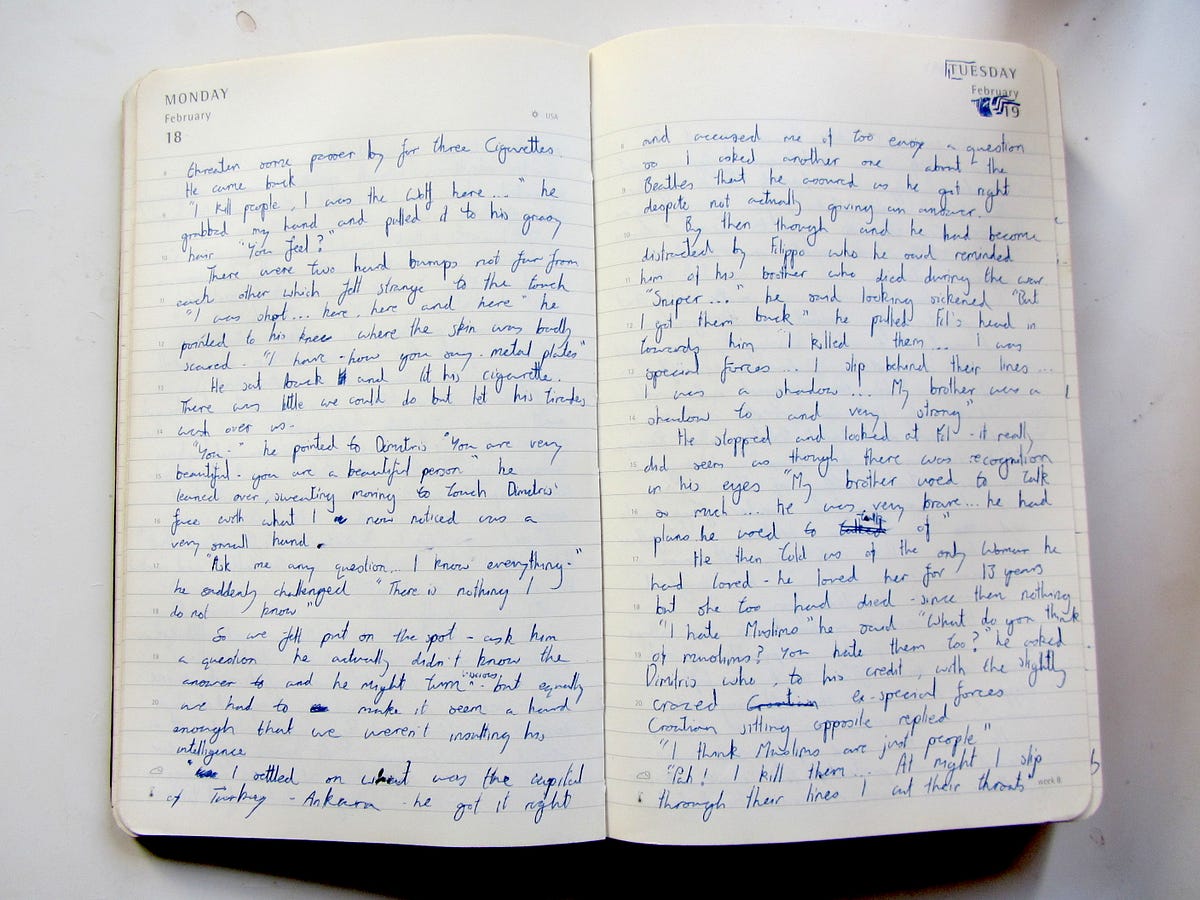 MONDAY
February
18
USA
threaten some passer by for three Cigarettes.
He came back
"I kill people, I was the Wolf here...." he
grabbed my hand and pulled it to his greasy
hair "You feel?"
There were two hard bumps not far from
each other which felt strange to the touch
"I was shot... here, here and here" he
pointed to his knee where the skin was badly
scared. "I have - how you say - metal plates"
He sat back and lit his cigarette.
There was little we could do but let his tirades
wash over us.
"You" he pointed to Dimitris "You are very
beautiful - you are a beautiful person" he
leaned over, sweating moving to touch Dimitris'
face with what I now noticed was a
very small hand.
"Ask me any question... I know everything."
he suddenly challenged "There is nothing I
do not know"
So we felt put on the spot - ask him
a question he actually didn't know the
answer to and he might turn vicious but equally
we had to make it seem a hard
enough that we weren't insulting his
intelligence
I settled on what was the capital
of Turkey - Ankara - he got it right
TUESDAY
February
19
and accused me of too easy a question
so I asked another one about the
Beatles that he assured us he got right
despite not actually giving an answer.
By then though and he had become
distracted by Filippo who he said reminded
him of his brother who died during the war
"Sniper..." he said looking sickened "But
I got them back" he pulled Fil's head in
towards him "I killed them... I was
special forces... I slip behind their lines...
I was a shadow... My brother was a
shadow to and very strong"
He stopped and looked at Fil - it really
did seem as though there was recognition
in his eyes "My brother used to talk
so much... he was very brave... he had
plans he used to talk of"
He then told us of the only woman he
had loved - he loved her for 13 years
but she too had died - since then nothing
"I hate Muslims" he said "What do you think
of muslims? You hate them too?" he asked
Dimitris who, to his credit, with the slightly
crazed Croatian ex-special forces
Croatian sitting opposite replied
"I think Muslims are just people"
"Pah! I kill them... At night I slip
through their lines I cut their throats
week 8